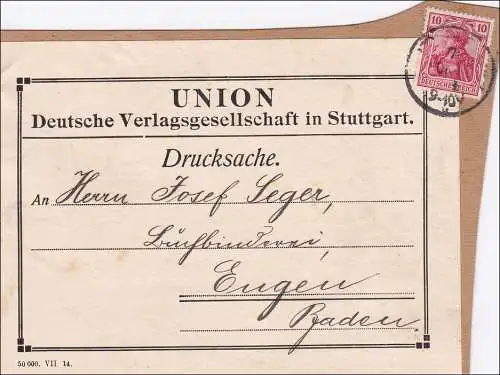 10 10
DEUTSCHES REICH
9-10V
UNION
Deutsche Verlagsgesellschaft in Stuttgart.
Drucksache.
An Herrn Josef Seger,
Buchbinderei,
Engen
Baden.
50 000. VII. 14.